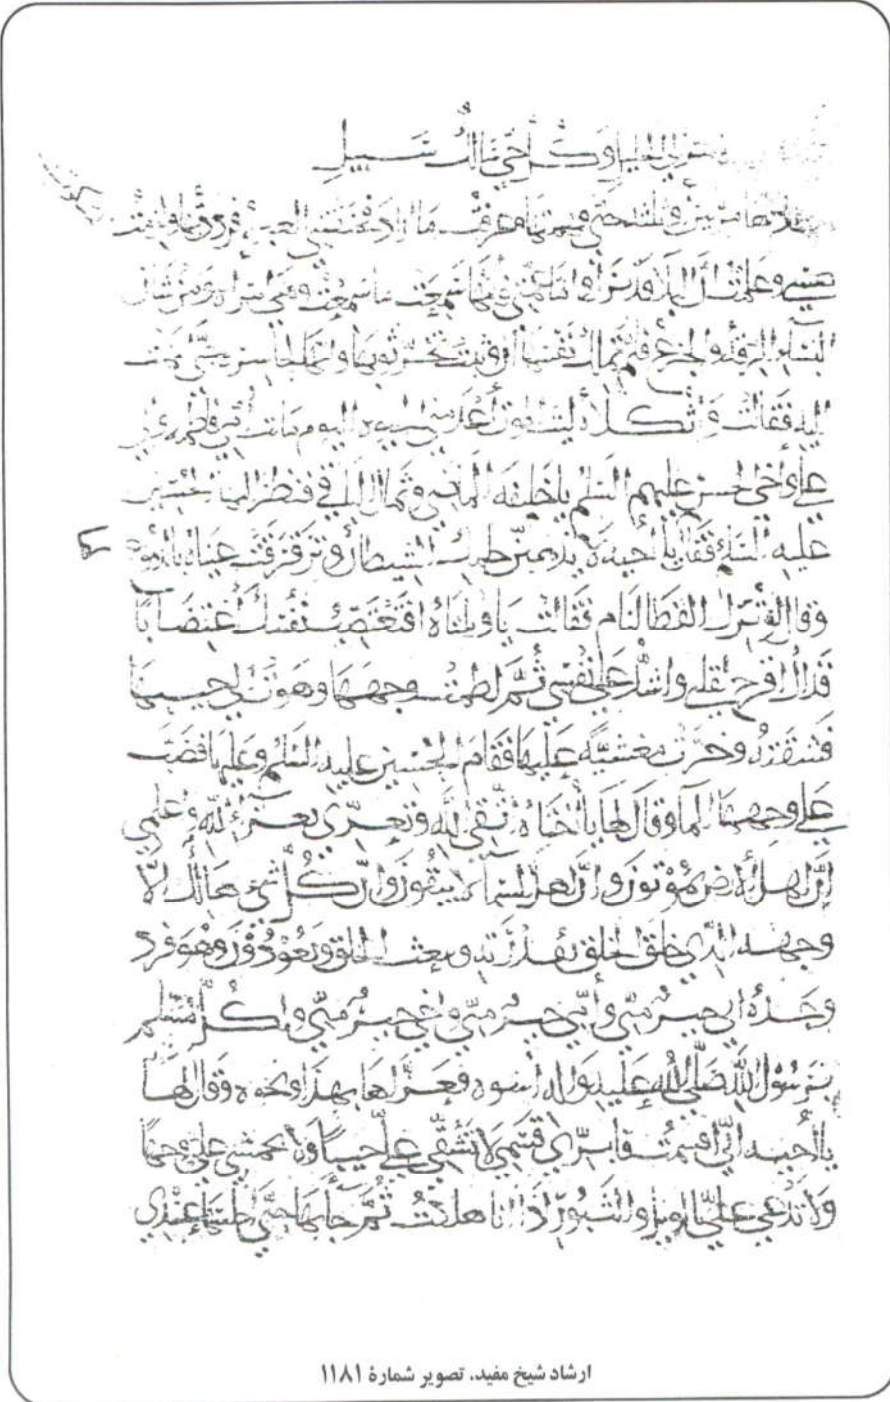 الجليل وكل حي سالك سبيل
مرتين وثلثا حتى فهمتها وعرفت ما اراد فخنقتني العبرة فرددتها ولزمت
وعلمت ان البلا قد نزل واما عمتي فانها سمعت ما سمعت وهي امراة ومن شان
النساء الرقة والجزع فلم تملك نفسها ان وثبت تجر ثوبها وانها لحاسر حتى انتهت
اليه فقالت وا ثكلاه ليت الموت أعدمني الحيوة اليوم ماتت أمي فاطمة وأبي
علي وأخي الحسن عليهم السلم يا خليفة الماضي وثمال الباقي فنظر اليها الحسين
عليه السلم فقال يا أخيه لا يذهبن حلمك الشيطان وترقرقت عيناه بالدموع
وقال لو ترك القطا لنام فقالت يا ويلتاه افتغتصب نفسك اغتصابا
فذاك اقرح لقلبي واشد على نفسي ثم لطمت وجهها وهوت الى جيبها
فشقته وخرت مغشية عليها فقام الحسين عليه السلم وعليها فصب
على وجهها الما وقال لها يا اختاه اتقي الله وتعزي بعزاء الله واعلمي
ان اهل الارض يموتون وان اهل السماء لا يبقون وان كل شيء هالك الا
وجهه الذي خلق الخلق بقدرته ويبعث الخلق ويعودون وهو فرد
وحده ابي خير مني وأمي خير مني واخي خير مني ولكل مسلم
برسول الله صلى الله عليه واله أسوه فعزاها بهذا ونحوه وقال لها
يا أخيه اني اقسمت فابري قسمي لا تشقي علي جيبا ولا تخمشي علي وجها
ولا تدعي علي بالويل والثبور اذا انا هلكت ثم جا بها حتى اجلسها عندي
ارشاد شیخ مفید، تصویر شمارۀ ۱۱۸۱